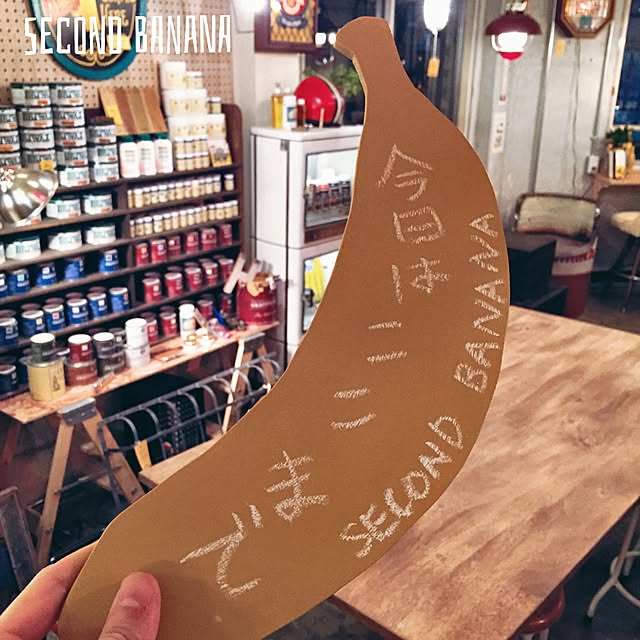 SECOND BANANA
今日はここまで
SECOND BANANA